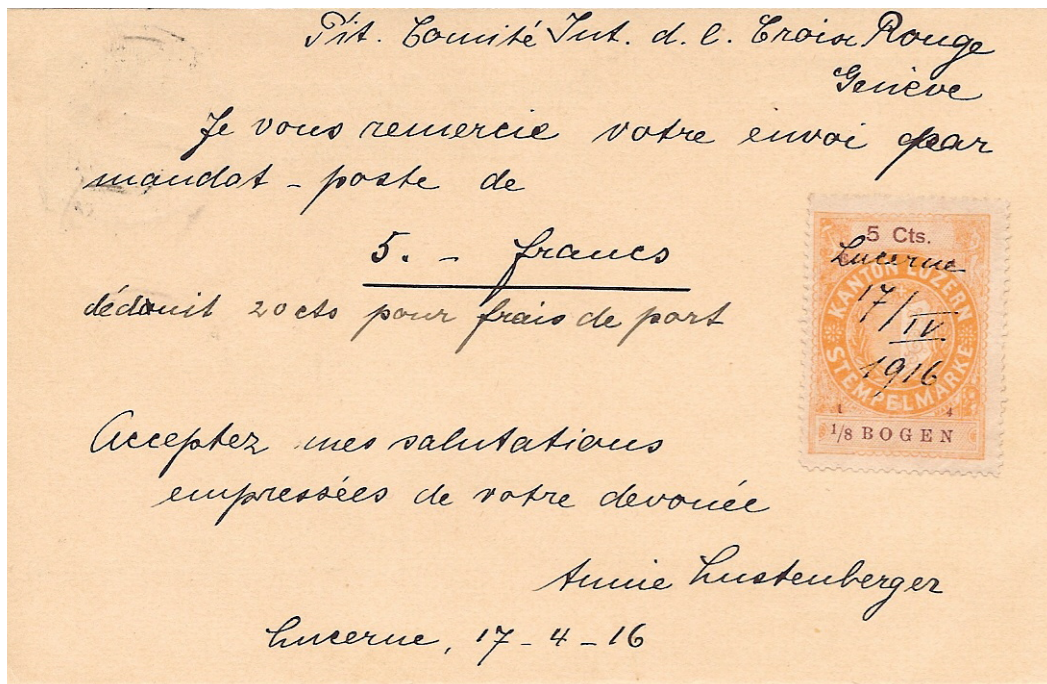 Tit. Comité Int. d. l. Croix Rouge
Genève
Je vous remercie votre envoi par
mandat - poste de
5. - francs
déduit 20 cts pour frais de port
5 Cts.
Lucerne
KANTON LUZERN
17/IV.
1916
STEMPELMARKE
1 4
1/8 BOGEN
Acceptez mes salutations
empressées de votre devouée
Annie Lustenberger
Lucerne, 17 - 4 - 16